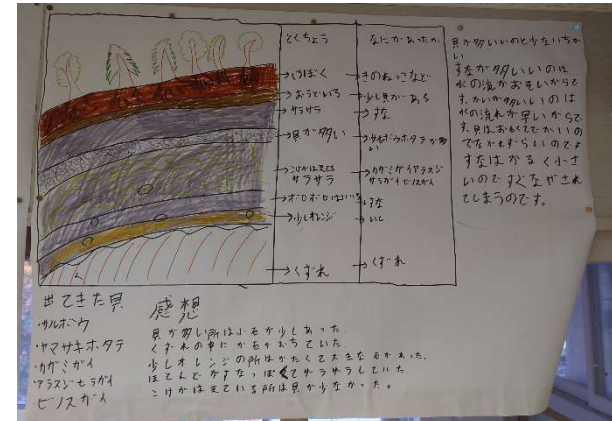 とくちょう
くろぼく
おうどいろ
サラサラ
貝が多い
こけがはえてる
サラサラ
ボロボロ
少しオレンジ
くずれ
なにがあったか
きのねっこなど
少し貝がある
すな
サルボウホタテが多
い
カガミガイアラスジ
サラガイビノスガイ
すな
いし
くずれ
貝が多いいのと少ないちが
い
すなが多いいのは
水の流がおそいからで
す。かいが多いいのは
水の流れが早いからで
す。貝はおもくてでかいの
でながれずらいのでよ
すなはかるく小さ
いのですぐながされ
てしまうのです。
出てきた貝
・サルボウ
・ヤマサキホタテ
・カガミガイ
・アラスジセラガイ
ビノスガイ
感想
貝が多い所は小石が少しあった。
くずれの中にか石がおちていた。
少しオレンジの所はかたくて大きな石があった。
ほてんどがすなっぽくてサラサラしていた。
こけがはえている所は貝が少なかった。